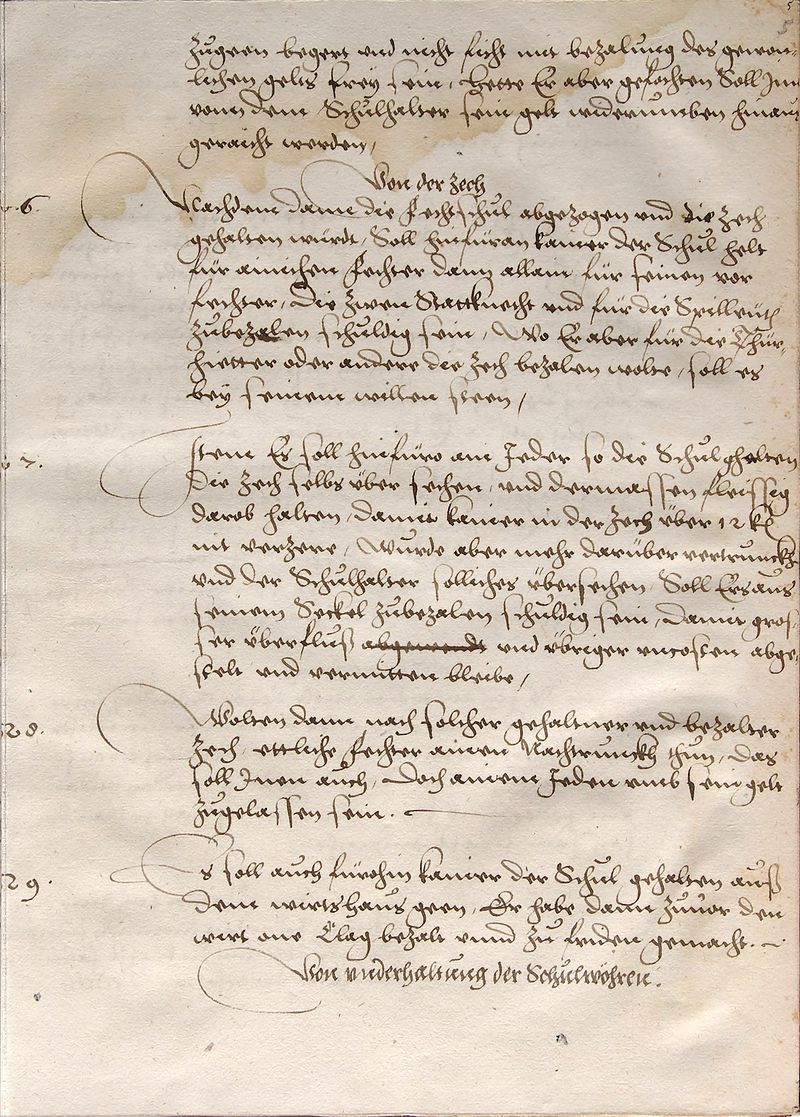 5
5
zugeen begert und nicht ficht mit bezalung des gewon-
lichen gelts frey sein, Hette Er aber gefochten Soll Jm
vonn dem Schulhalter sein gelt widerumben hinaus
geraicht werden,
Von der zech
6.
Nachdem dann die Fechtschul abgezogen und die Zech
gehalten wurdt, Soll hinfüran kainer der Schul helt
für ainichen Fechter dann allain für seinen vor
fechter, die zwen Stattknecht und für die Spilleüt
zubezalen schuldig sein, Wo Er aber für die Thür-
hietter oder andere die zech bezalen wolte, soll es
bey seinem willen steen,
7.
Item Es soll hinfüro ain Jeder so die Schul gehalten
die Zech selbs über sechen, und dermassen fleissig
darob halten, damit kainer in der Zech über 12 kr
nit verzere, Wurde aber mehr darüber vertrunckh
und der Schulhalter solliches übersechen, Soll Ers aus
seinem Seckel zubezalen schuldig sein, damit gros-
ser überfluß abgewendt und übriger uncosten abge-
stelt und vermitten bleibe,
28.
Wolten dann nach solcher gehaltner und bezalter
Zech, ettliche Fechter ainen Nachtrunckh thun, das
soll Jnen auch, doch ainem Jeden umb sein gelt
zugelassen sein.
29.
Es soll auch fürohin kainer der Schul gehalten auß
dem wirtshaus geen, Er habe dann zuvor den
wirt one Clag bezalt unnd zu friden gemacht.
Von underhaltung der Schulwöhren.